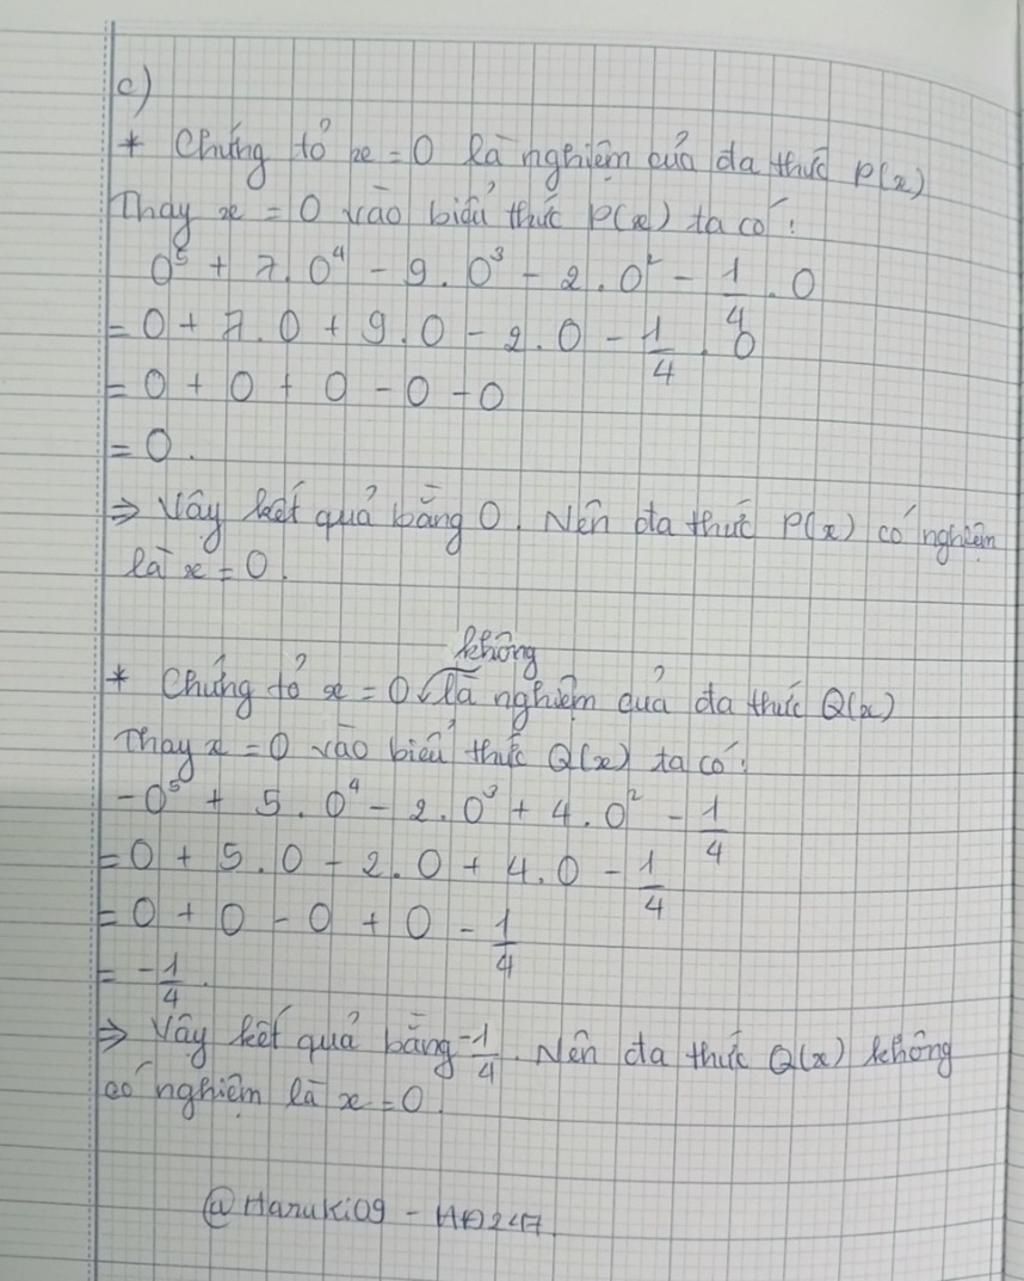 c)
* Chứng tỏ x = 0 là nghiệm của đa thức P(x)
Thay x = 0 vào biểu thức P(x) ta có:
0⁵ + 7.0⁴ - 9.0³ - 2.0² - 1/4.0
= 0 + 7.0 + 9.0 - 2.0 - 1/4.0
= 0 + 0 + 0 - 0 - 0
= 0.
⇒ Vậy kết quả bằng 0. Nên đa thức P(x) có nghiệm
là x = 0.
không
* Chứng tỏ x = 0 √ là nghiệm quả đa thức Q(x)
Thay x = 0 vào biểu thức Q(x) ta có:
-0⁵ + 5.0⁴ - 2.0³ + 4.0² - 1/4
= 0 + 5.0 - 2.0 + 4.0 - 1/4
= 0 + 0 - 0 + 0 - 1/4
= -1/4.
⇒ Vậy kết quả bằng -1/4. Nên đa thức Q(x) không
có nghiệm là x = 0.
@Haruki09 - HD247